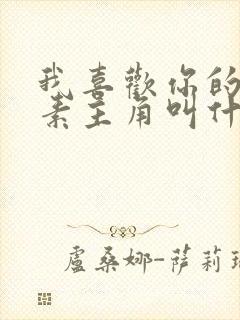 我喜歡你的
素主角叫什
盧桑娜-薩莉